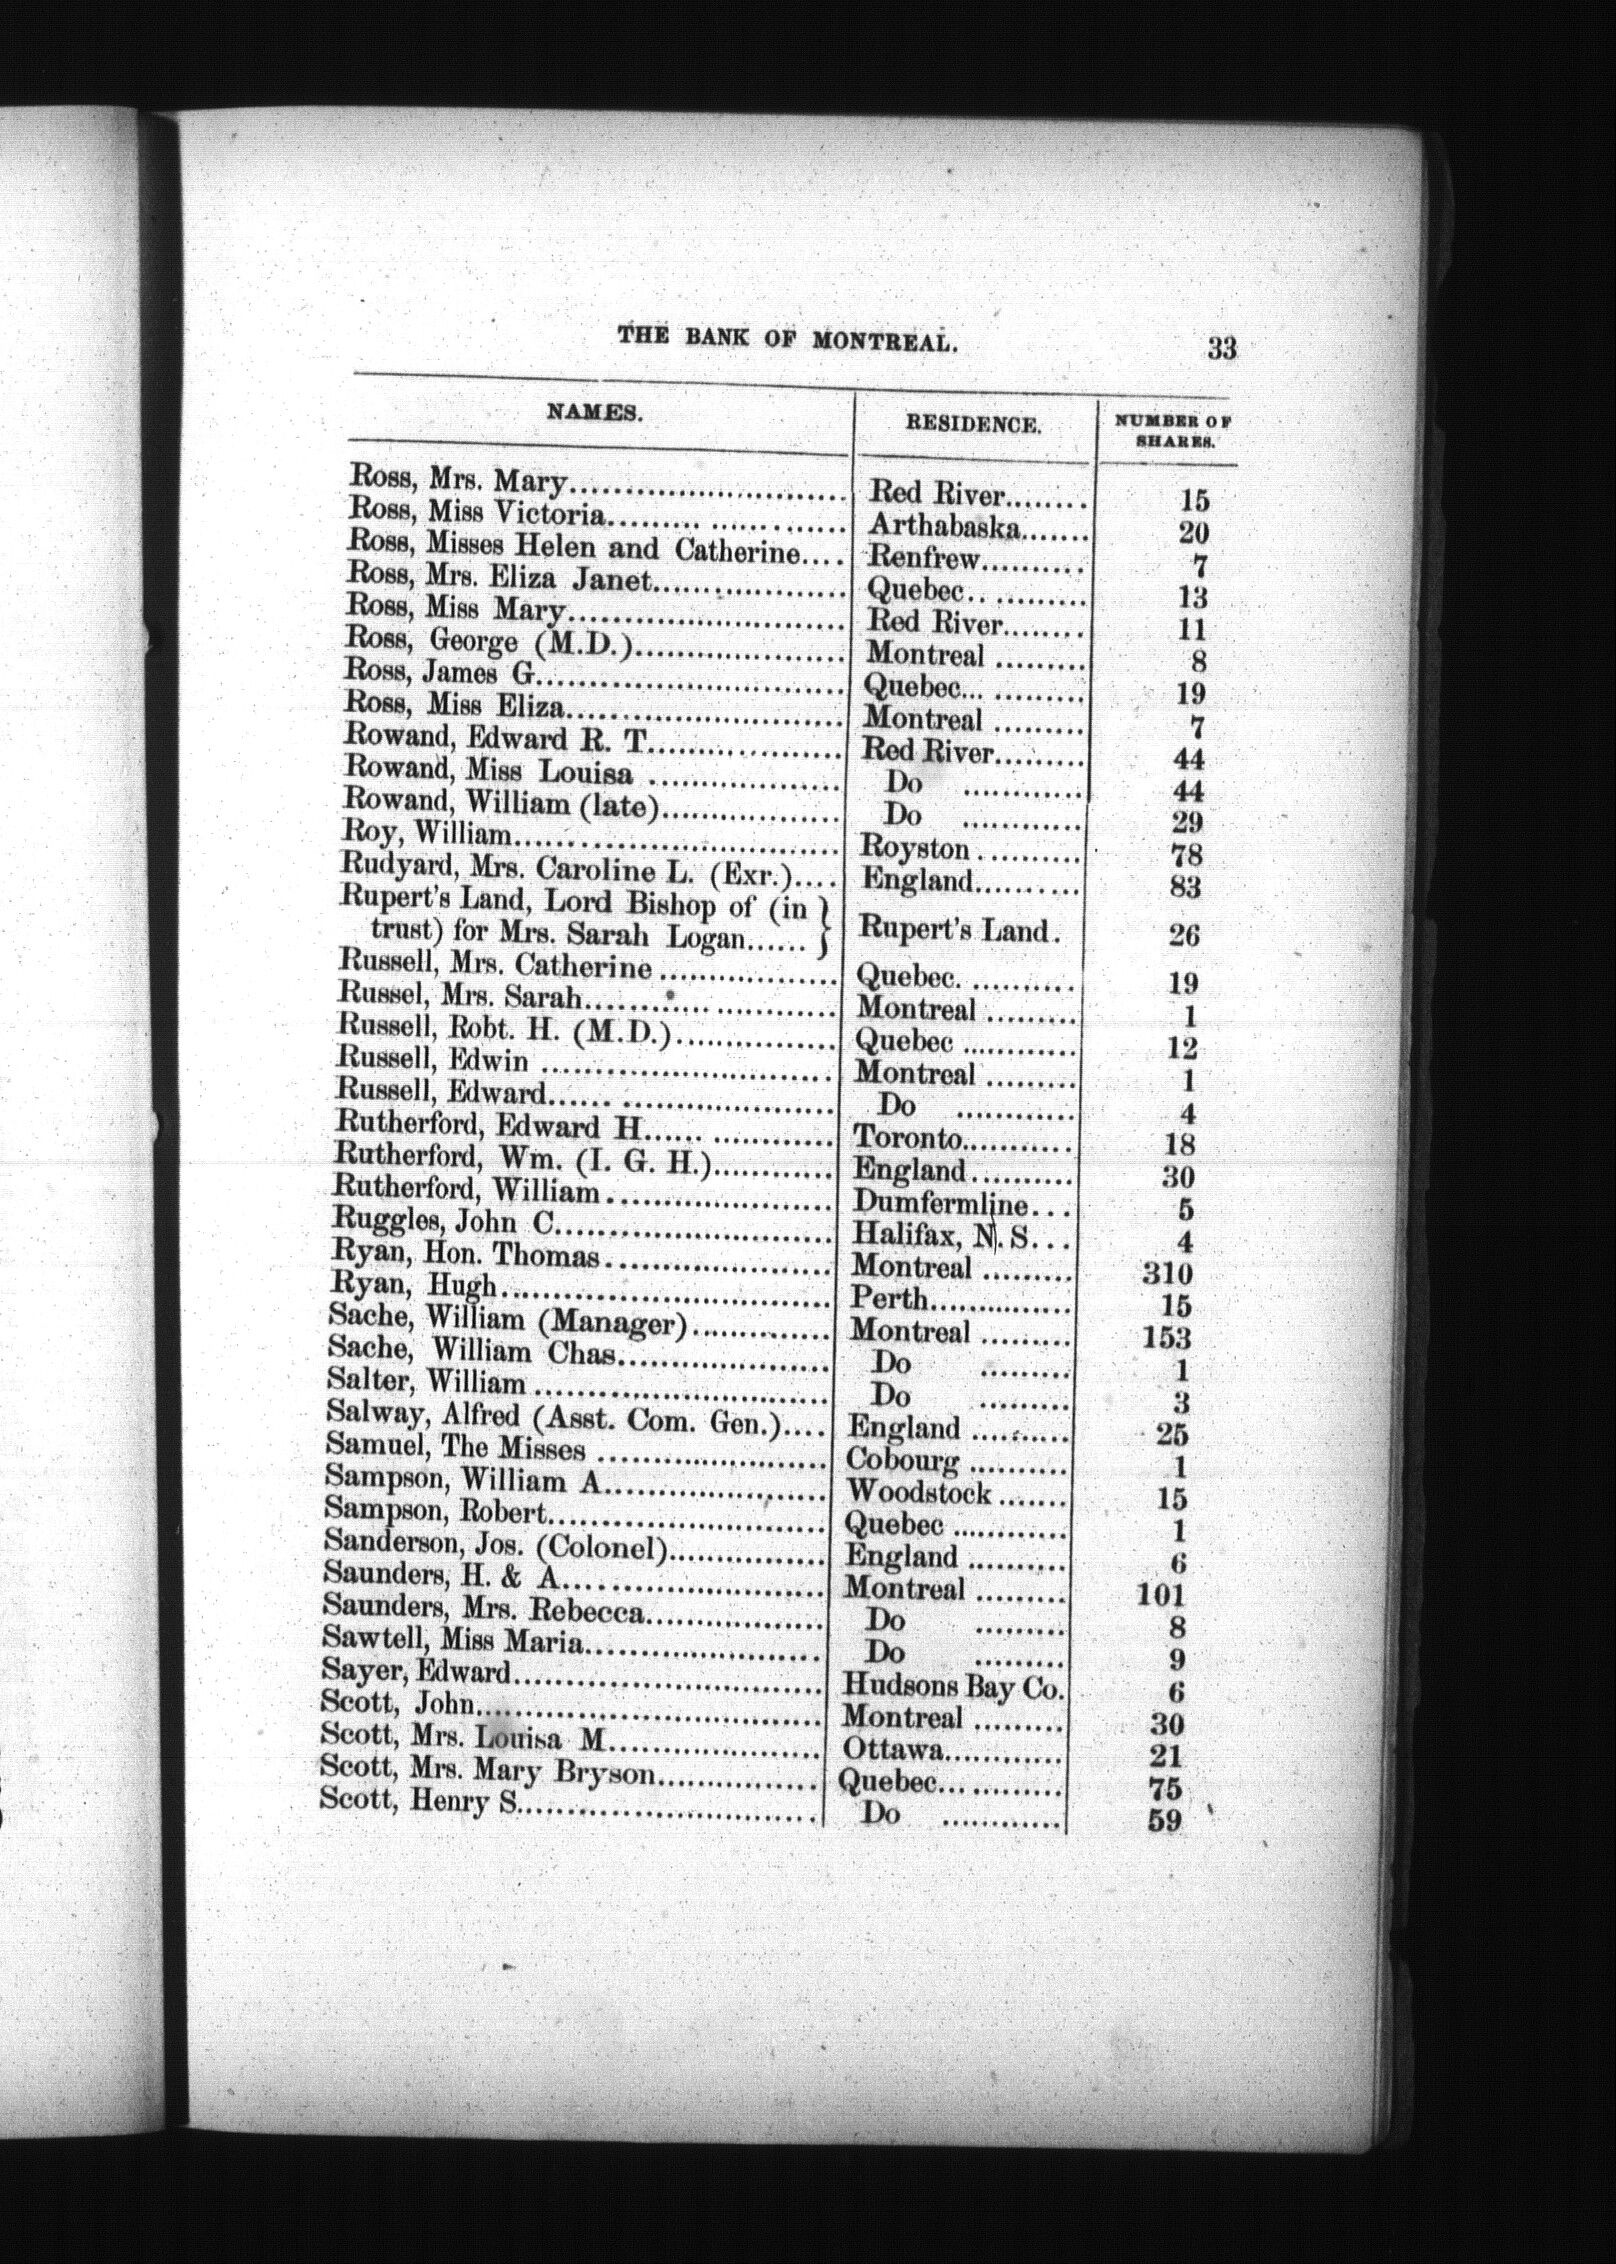 THE BANK OF MONTREAL. 33
NAMES. RESIDENCE. NUMBER OF SHARES.
Ross, Mrs. Mary........ Red River........ 15
Ross, Miss Victoria........ Arthabaska....... 20
Ross, Misses Helen and Catherine.... Renfrew.......... 7
Ross, Mrs. Eliza Janet........ Quebec.......... 13
Ross, Miss Mary........ Red River........ 11
Ross, George (M.D.)........ Montreal ......... 8
Ross, James G........ Quebec.......... 19
Ross, Miss Eliza........ Montreal ......... 7
Rowand, Edward R. T........ Red River......... 44
Rowand, Miss Louisa ........ Do ............ 44
Rowand, William (late)........ Do ............ 29
Roy, William........ Royston........... 78
Rudyard, Mrs. Caroline L. (Exr.).... England.......... 83
Rupert's Land, Lord Bishop of (in }
trust) for Mrs. Sarah Logan...... } Rupert's Land. 26
Russell, Mrs. Catherine ........ Quebec........... 19
Russel, Mrs. Sarah........ Montreal ......... 1
Russell, Robt. H. (M.D.)........ Quebec ............ 12
Russell, Edwin ........ Montreal ......... 1
Russell, Edward........ Do ............ 4
Rutherford, Edward H........ Toronto........... 18
Rutherford, Wm. (I. G. H.)........ England........... 30
Rutherford, William........ Dumfermline... 5
Ruggles, John C........ Halifax, N. S... 4
Ryan, Hon. Thomas........ Montreal ......... 310
Ryan, Hugh........ Perth............... 15
Sache, William (Manager)........ Montreal ......... 153
Sache, William Chas........ Do ......... 1
Salter, William ........ Do ......... 3
Salway, Alfred (Asst. Com. Gen.).... England .......... 25
Samuel, The Misses ........ Cobourg .......... 1
Sampson, William A........ Woodstock ....... 15
Sampson, Robert........ Quebec ............ 1
Sanderson, Jos. (Colonel)........ England .......... 6
Saunders, H. & A........ Montreal ......... 101
Saunders, Mrs. Rebecca........ Do ......... 8
Sawtell, Miss Maria........ Do ......... 9
Sayer, Edward........ Hudsons Bay Co. 6
Scott, John........ Montreal ......... 30
Scott, Mrs. Louisa M........ Ottawa............ 21
Scott, Mrs. Mary Bryson........ Quebec............ 75
Scott, Henry S........ Do ............ 59